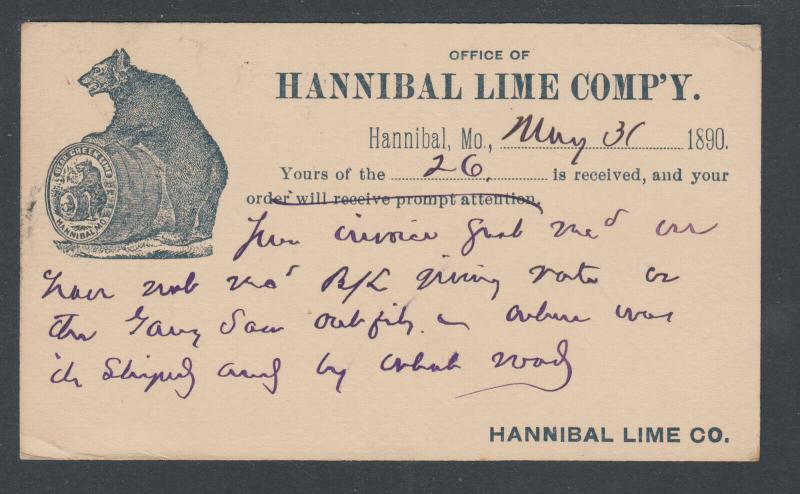 OFFICE OF
HANNIBAL LIME COMP'Y.
Hannibal, Mo., May 31 1890.
Yours of the 26. is received, and your
order will receive prompt attention.
invoice just rec'd we
have not rec'd B/L giving rate on
the Gang Saw outfit when was
it shiped and by what road
HANNIBAL LIME CO.
BEAR CREEK LIME
HANNIBAL. MO.